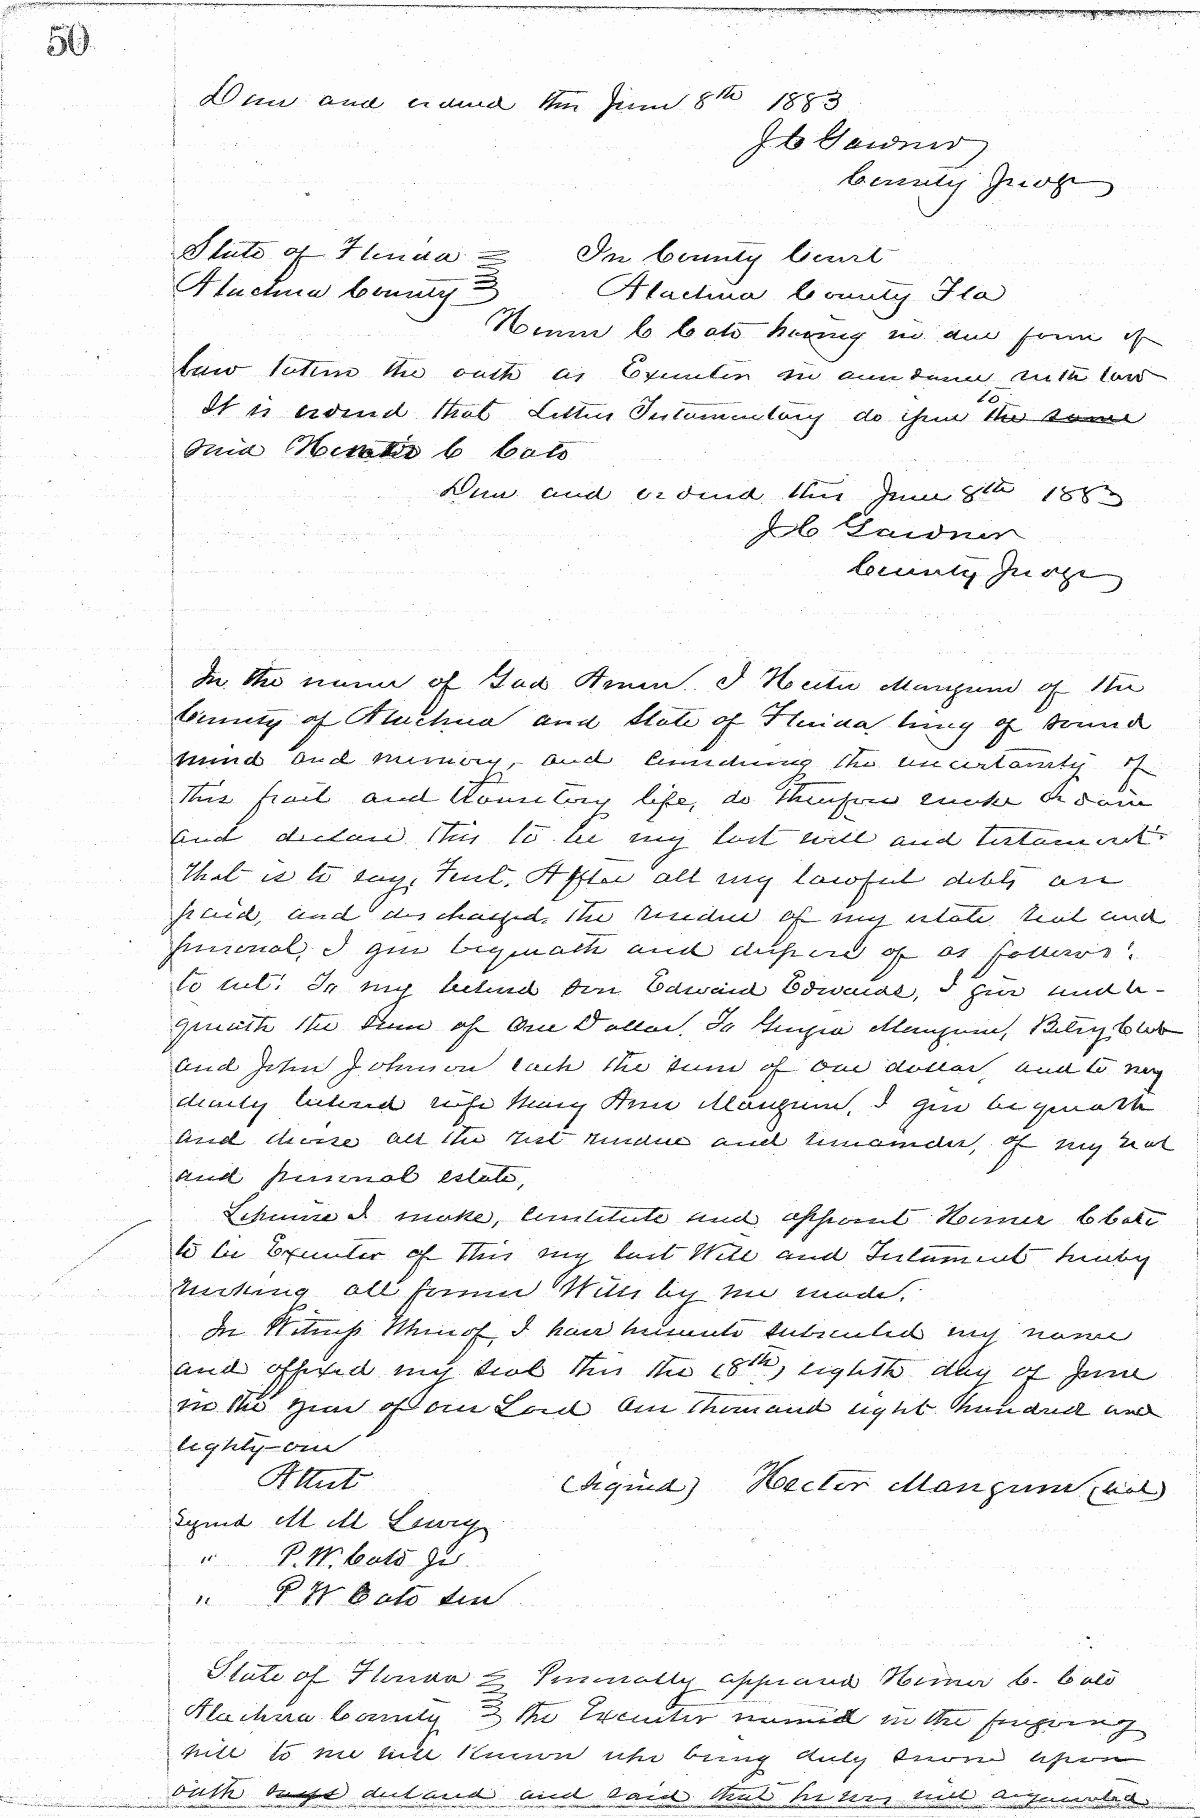 50
Done and ordered this June 8th 1883
J C Gardner
County Judge
State of Florida In County Court
Alachua County Alachua County Fla
Homer C Cato having in due form of
law taken the oath as Executor in accordance with law
It is ordered that Letters Testamentary do issue to the same
said Homer C Cato
Done and ordered this June 8th 1883
J C Gardner
County Judge
In the name of God Amen. I Hector Mangum of the
County of Alachua and State of Florida being of sound
mind and memory, and considering the uncertainty of
this frail and transitory life, do therefore make ordain
and declare this to be my last will and testament:
That is to say, First, After all my lawful debts are
paid, and discharged, the residue of my estate real and
personal, I give bequeath and dispose of as follows:
to wit: To my beloved son Edward Edwards, I give and be-
queath the sum of One Dollar. To Mangum, Betsy
and John Johnson each the sum of one dollar, and to my
dearly beloved wife Mary Ann Mangum, I give bequeath
and devise all the rest residue and remainder, of my real
and personal estate,
Likewise I make, constitute and appoint Homer C Cato
to be Executor of this my last Will and Testament hereby
revoking all former Wills by me made.
In Witness Whereof, I have hereunto subscribed my name
and affixed my seal this the (8th) eighth day of June
in the year of our Lord One thousand eight hundred and
eighty-one
Attest (Signed) Hector Mangum (seal)
Signed M M Lewey
" P. W. Cato Jr
" P W Cato Sen
State of Florida Personally appeared Homer C. Cato
Alachua County the Executor named in the foregoing
will to me well known who being duly sworn upon
oath says declared and said that he was well acquainted